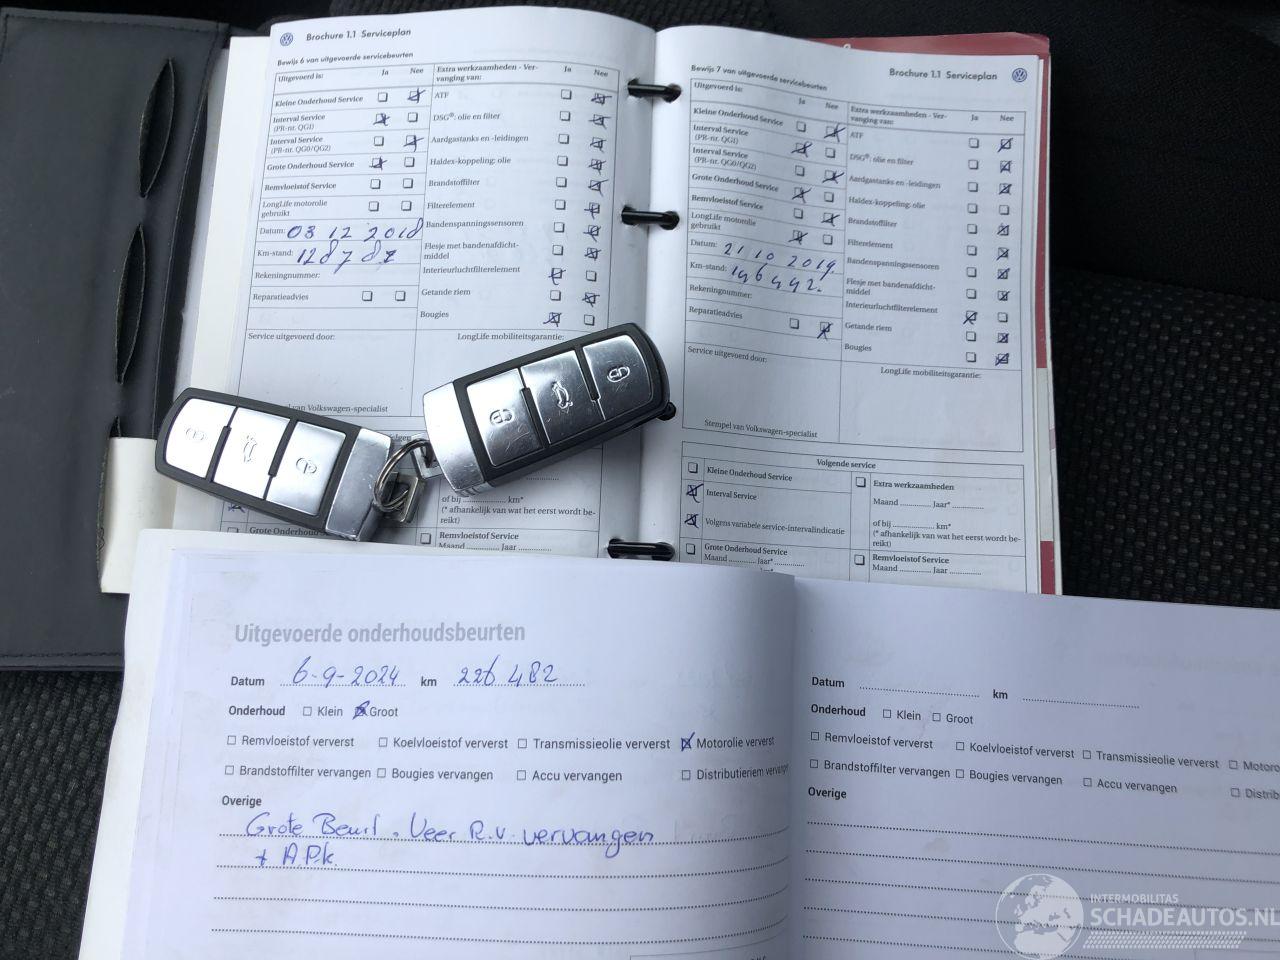 Brochure 1.1 Serviceplan
Bewijs 6 van uitgevoerde servicebeurten
Uitgevoerd is: Ja Nee
Kleine Onderhoud Service
Interval Service
(PR-nr. QG1)
Interval Service
(PR-nr. QG0/QG2)
Grote Onderhoud Service
Remvloeistof Service
LongLife motorolie
gebruikt
Datum: 03 12 2018
Km-stand: 128787
Rekeningnummer:
Reparatieadvies
Service uitgevoerd door:
van Volkswagen-specialist
Extra werkzaamheden - Ver-
vanging van: Ja Nee
ATF
DSG®: olie en filter
Aardgastanks en -leidingen
Haldex-koppeling: olie
Brandstoffilter
Filterelement
Bandenspanningssensoren
Flesje met bandenafdicht-
middel
Interieurluchtfilterelement
Getande riem
Bougies
LongLife mobiliteitsgarantie:
of bij km*
(* afhankelijk van wat het eerst wordt be-
reikt)
Grote Onderhoud
Remvloeistof Service
Maand Jaar
Brochure 1.1 Serviceplan
Bewijs 7 van uitgevoerde servicebeurten
Uitgevoerd is: Ja Nee
Kleine Onderhoud Service
Interval Service
(PR-nr. QG1)
Interval Service
(PR-nr. QG0/QG2)
Grote Onderhoud Service
Remvloeistof Service
LongLife motorolie
gebruikt
Datum: 21 10 2019
Km-stand: 146442.
Rekeningnummer:
Reparatieadvies
Service uitgevoerd door:
Stempel van Volkswagen-specialist
Extra werkzaamheden - Ver-
vanging van: Ja Nee
ATF
DSG®: olie en filter
Aardgastanks en -leidingen
Haldex-koppeling: olie
Brandstoffilter
Filterelement
Bandenspanningssensoren
Flesje met bandenafdicht-
middel
Interieurluchtfilterelement
Getande riem
Bougies
LongLife mobiliteitsgarantie:
Volgende service
Kleine Onderhoud Service
Interval Service
Volgens variabele service-intervalindicatie
Grote Onderhoud Service
Maand Jaar*
Extra werkzaamheden
Maand Jaar*
of bij km*
(* afhankelijk van wat het eerst wordt be-
reikt)
Remvloeistof Service
Maand Jaar
Uitgevoerde onderhoudsbeurten
Datum 6-9-2024 km 226 482
Onderhoud Klein Groot
Remvloeistof ververst Koelvloeistof ververst Transmissieolie ververst Motorolie ververst
Brandstoffilter vervangen Bougies vervangen Accu vervangen Distributieriem vervangen
Overige
Grote Beurt. Veer R.V. vervangen
+ A.P.k.
Datum km
Onderhoud Klein Groot
Remvloeistof ververst Koelvloeistof ververst Transmissieolie ververst Motoro
Brandstoffilter vervangen Bougies vervangen Accu vervangen Distrib
Overige
INTERMOBILITAS
SCHADEAUTOS.NL